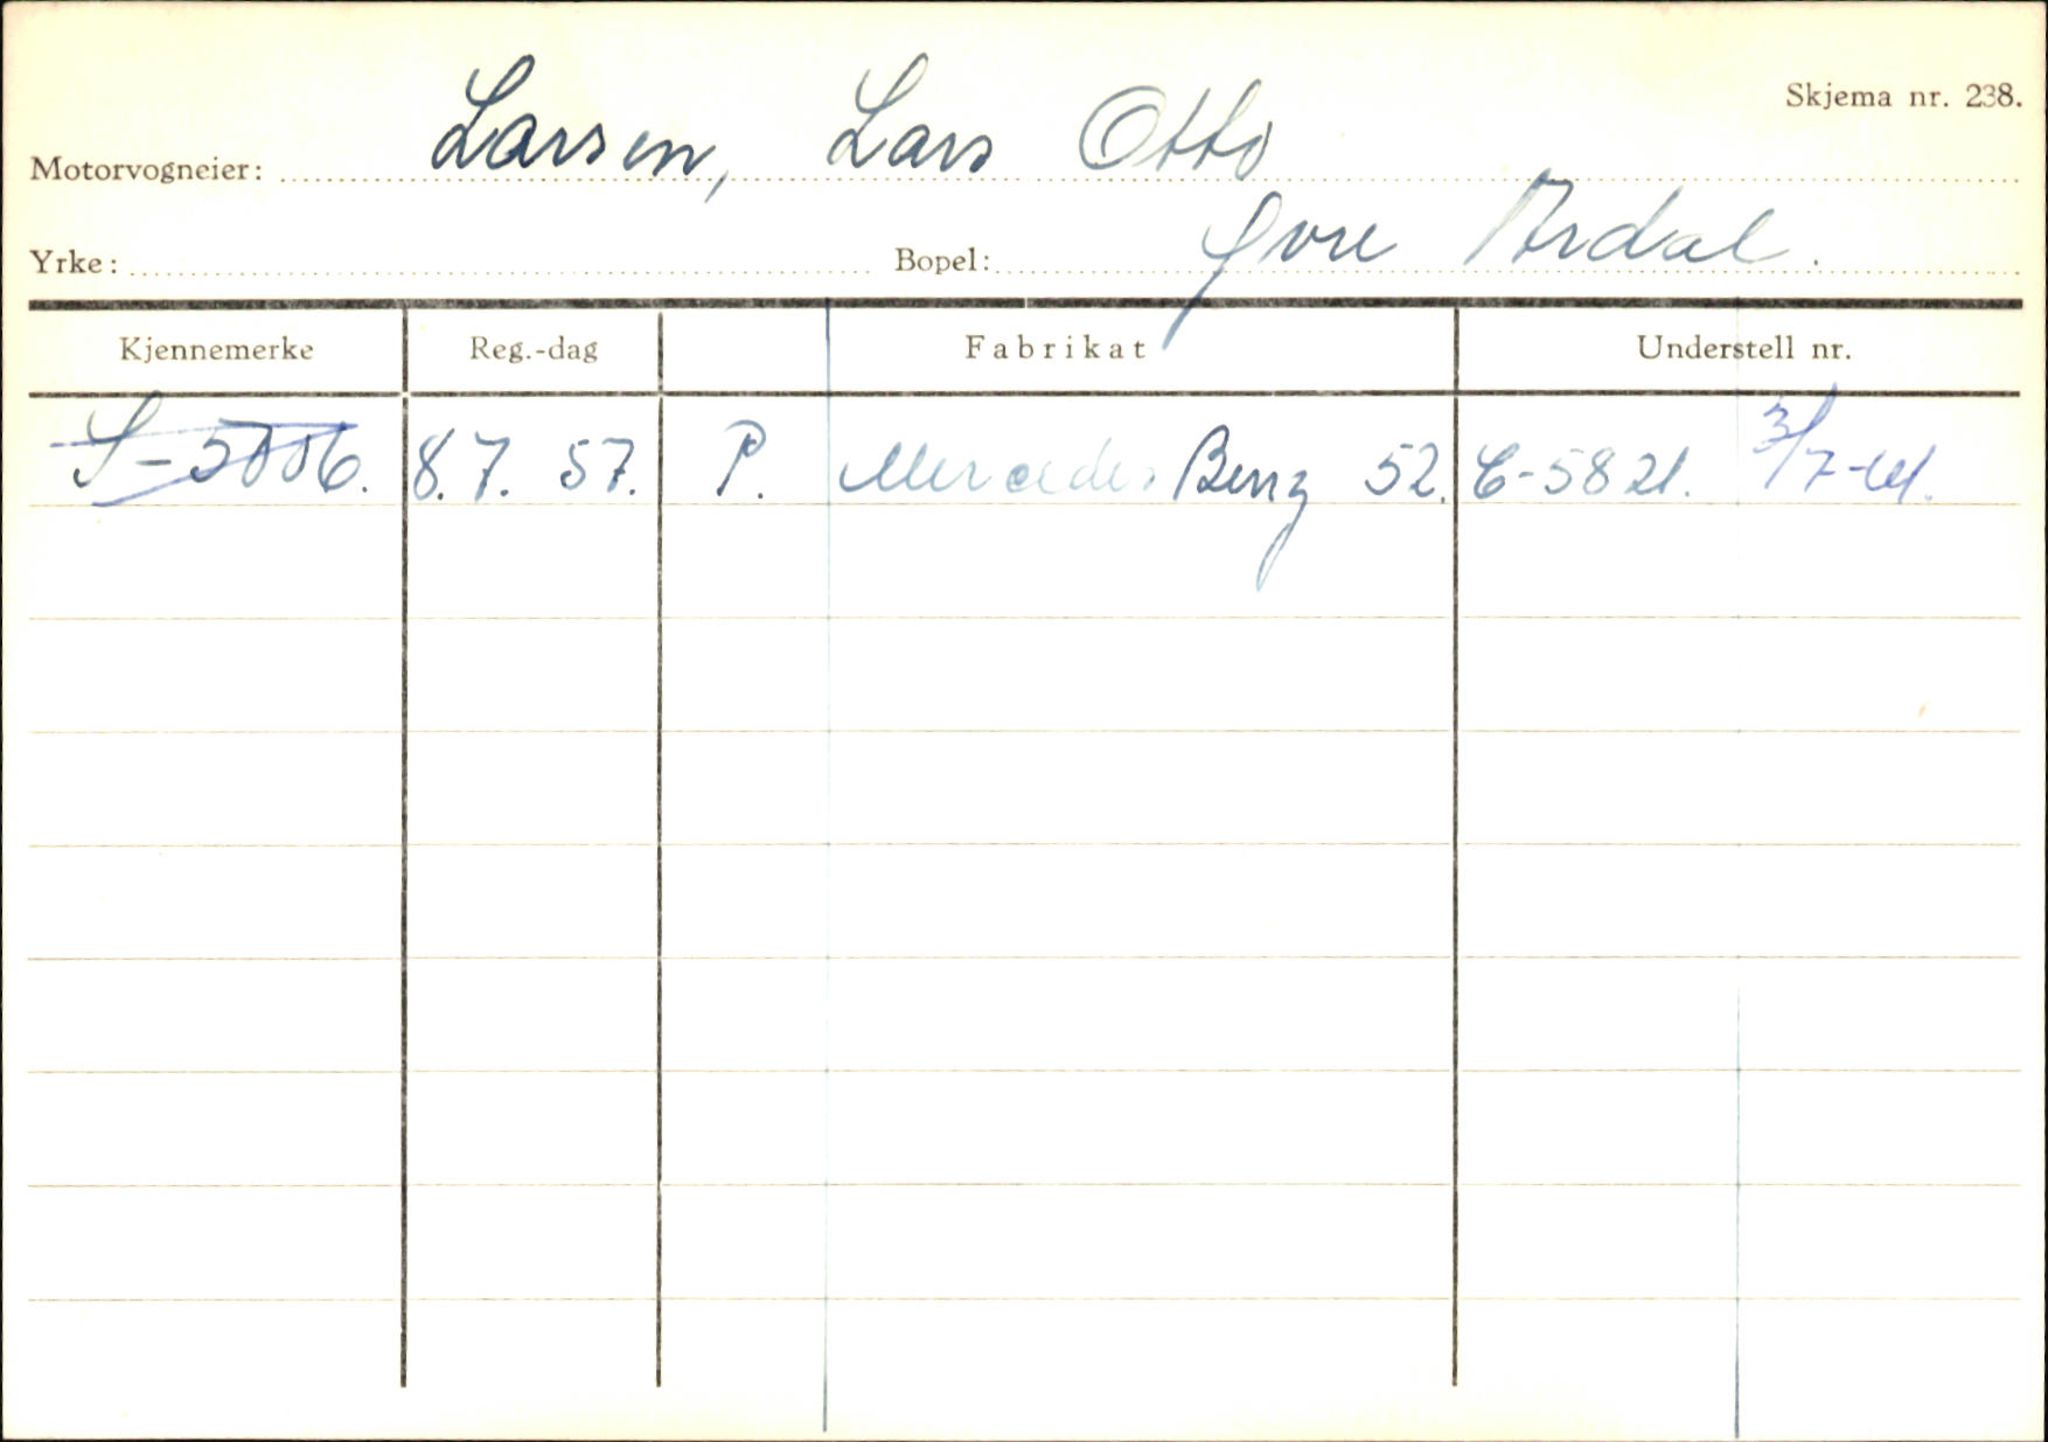 Skjema nr. 238.
Motorvogneier: Larsen, Lars Otto
Yrke: Bopel: Øvre Årdal.
Kjennemerke Reg.-dag Fabrikat Understell nr.
S-5006. 8.7. 57. P. Mercedes Benz 52. C-5821. 3/7-61.